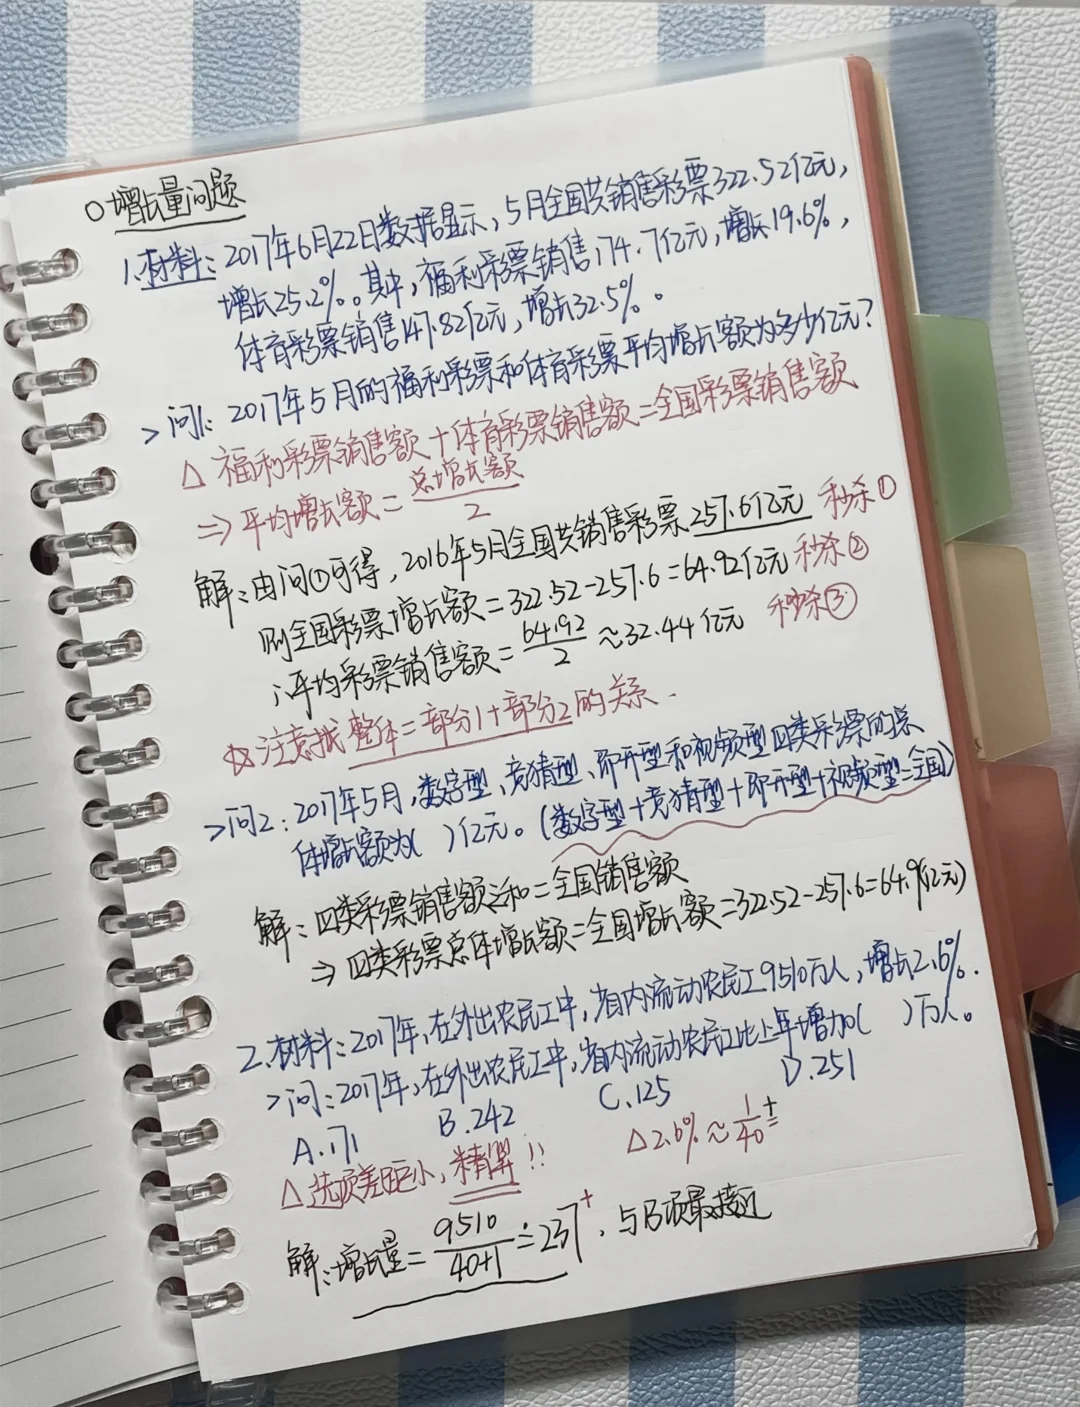 ○增长量问题
1.材料:2017年6月22日数据显示,5月全国共销售彩票322.52亿元,
增长25.2%。其中,福利彩票销售174.7亿元,增长19.6%,
体育彩票销售147.82亿元,增长32.5%。
>问1:2017年5月的福利彩票和体育彩票平均增长额为多少亿元?
△ 福利彩票销售额+体育彩票销售额=全国彩票销售额
⇒平均增长额=总增长额/2
解:由问①可得,2016年5月全国共销售彩票257.6亿元 秒杀①
则全国彩票增长额=322.52-257.6=64.92亿元 秒杀②
∴平均彩票销售额=64.92/2≈32.44亿元 秒杀③
☆注意找整体=部分1+部分2的关系.
>问2:2017年5月,数字型、竞猜型、即开型和视频型四类彩票的总
体增长额为( )亿元。(数字型+竞猜型+即开型+视频型=全国)
解:四类彩票销售额之和=全国销售额
⇒四类彩票总体增长额=全国增长额=322.52-257.6=64.9(亿元)
2.材料:2017年,在外出农民工中,省内流动农民工9510万人,增长2.6%.
>问:2017年,在外出农民工中,省内流动农民工比上年增加( )万人。
A.171 B.242 C.125 D.251
△选项差距小,精算!! △2.6%≈1/40⁺
解:增长量=9510/(40+1)≐237⁺,与B项最接近